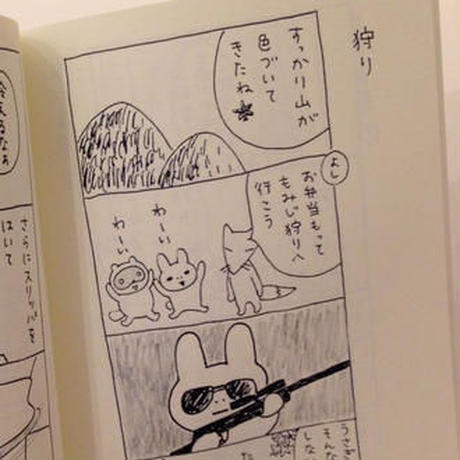 狩り
すっかり山が
色づいて
きたね
よし
お弁当もって
もみじ狩りへ
行こう
わーい
わーい
うさぎ
そんな
しない
た
なるなぁ
さらにスリッパを
はいて